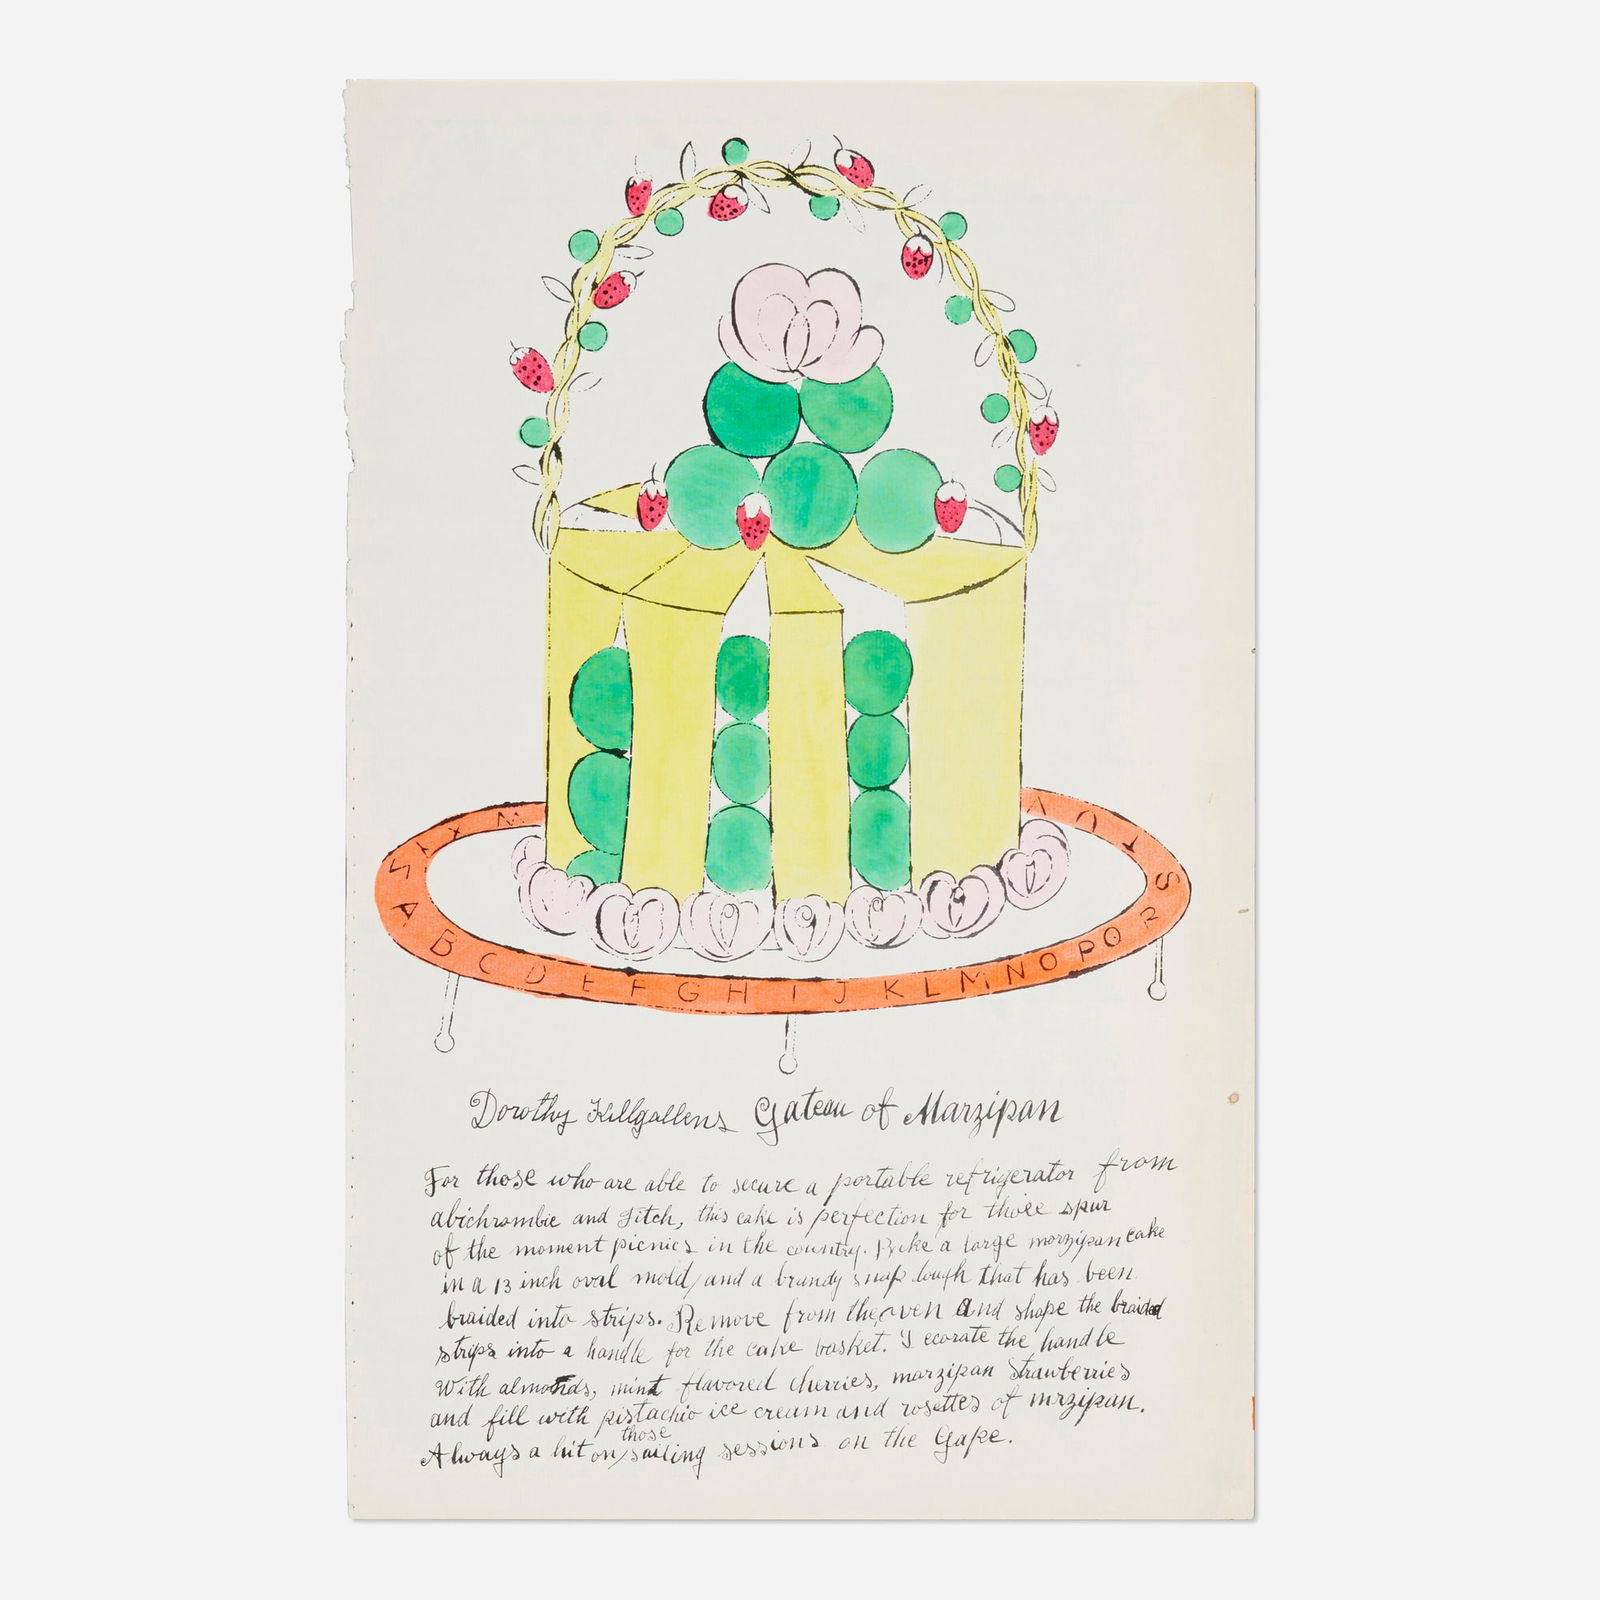 A B C D E F G H I J K L M N O P Q R S
Dorothy Killgallens Gateau of Marzipan
For those who are able to secure a portable refrigerator from
abichrombie and Fitch, this cake is perfection for those spur
of the moment picnics in the country. Bake a large marzipan cake
in a 13 inch oval mold, and a brandy snap dough that has been
braided into strips. Remove from the oven and shape the braided
strips into a handle for the cake basket. Decorate the handle
With almonds, mint flavored cherries, marzipan Strawberries
and fill with pistachio ice cream and rosettes of mrzipan.
Always a hit on those sailing sessions on the Gape.